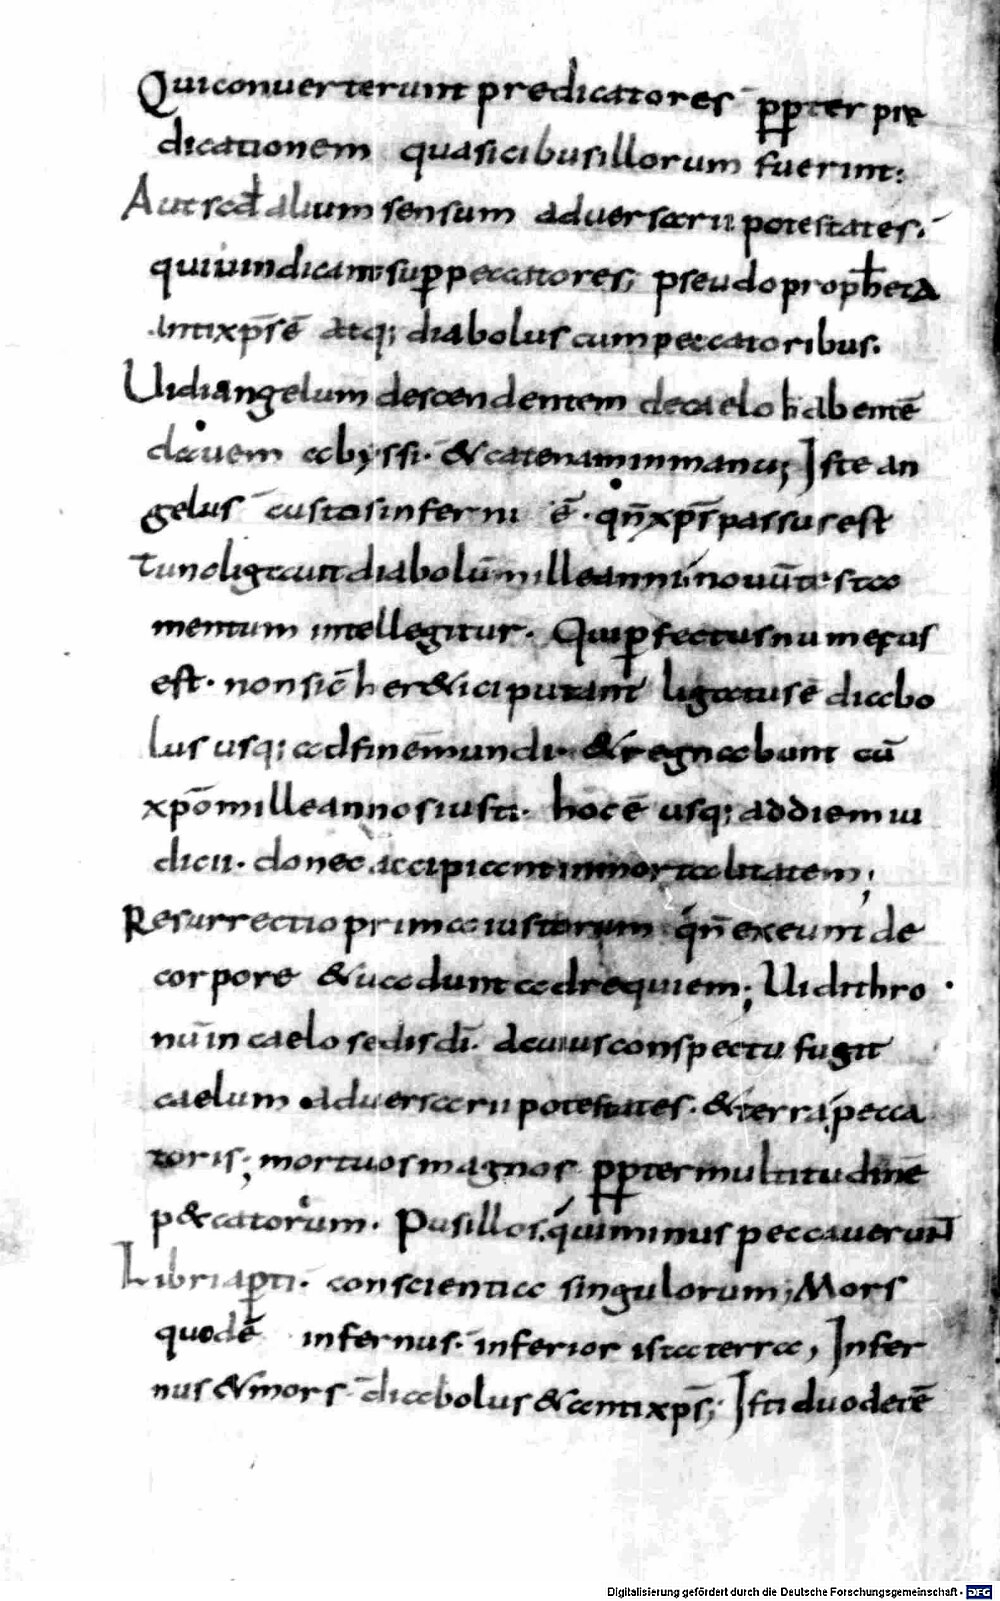 Qui conuerterunt predicatores pꝑter pre
dicationem quasi cibus illorum fuerint:
Aut scđ alium sensum aduersarii potestates.
qui uindicant suꝑ peccatores; pseudo propheta
Antixp̄s ē atq; diabolus cum peccatoribus.
Uidi angelum descendentem de caelo habentē
clauem abyssi. & catenam in manu; Iste an
gelus custos inferni ē. qn̄ xp̄s passus est
tunc ligauit diabolū mille anni nouū testa
mentum intellegitur. Qui ꝑfectus numerus
est. non sic̄ her&ici putant ligatus ē diabo
lus usq; ad finem mundi. & regnabunt cū
xp̄o mille annos iusti. hoc ē usq; ad diem iu
dicii. donec accipiant inmortalitatem;
Resurrectio prima iustorum qn̄ exeunt de
corpore & uadunt ad requiem; Uidi thro
nū in caelo sedis dī. a cuius conspectu fugit
caelum aduersarii potestates. & terra pecca
toris; mortuos magnos pꝑter multitudinē
p&catorum. Pusillos qui minus peccauerunt
Libri aꝑti. conscientia singulorum; Mors
quodē infernus. inferior ista terra, Infer
nus & mors diabolus & antixp̄s; Isti duo detē
Digitalisierung gefördert durch die Deutsche Forschungsgemeinschaft - DFG